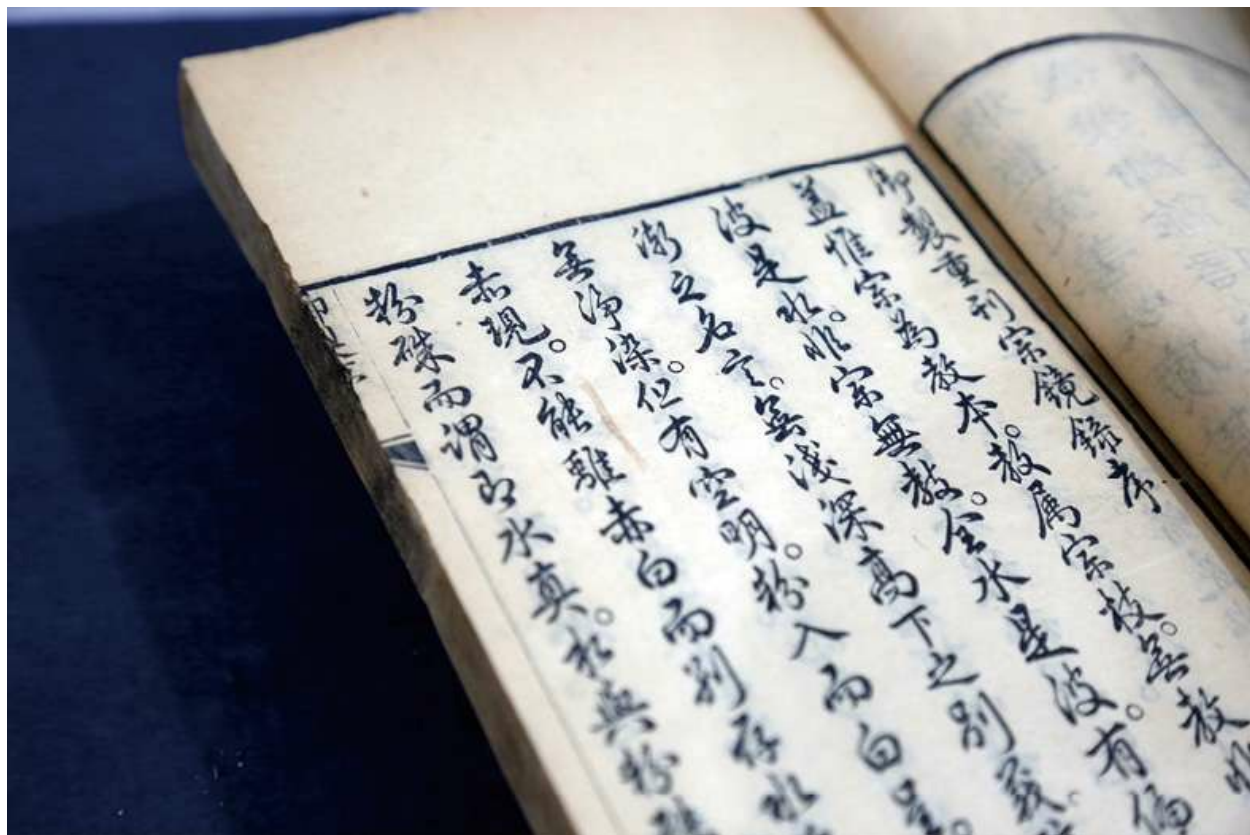 御製重刊宗鏡錄序
蓋惟宗為教本。教属宗枝。無教
波是水。非宗無教。全水是波。有偏
漸之名言。無淺深高下之別義
無淨染。但有空明。粉入而白呈。
赤現。不能離赤白而別存水
粉硃而謂即水真。於與粉硃